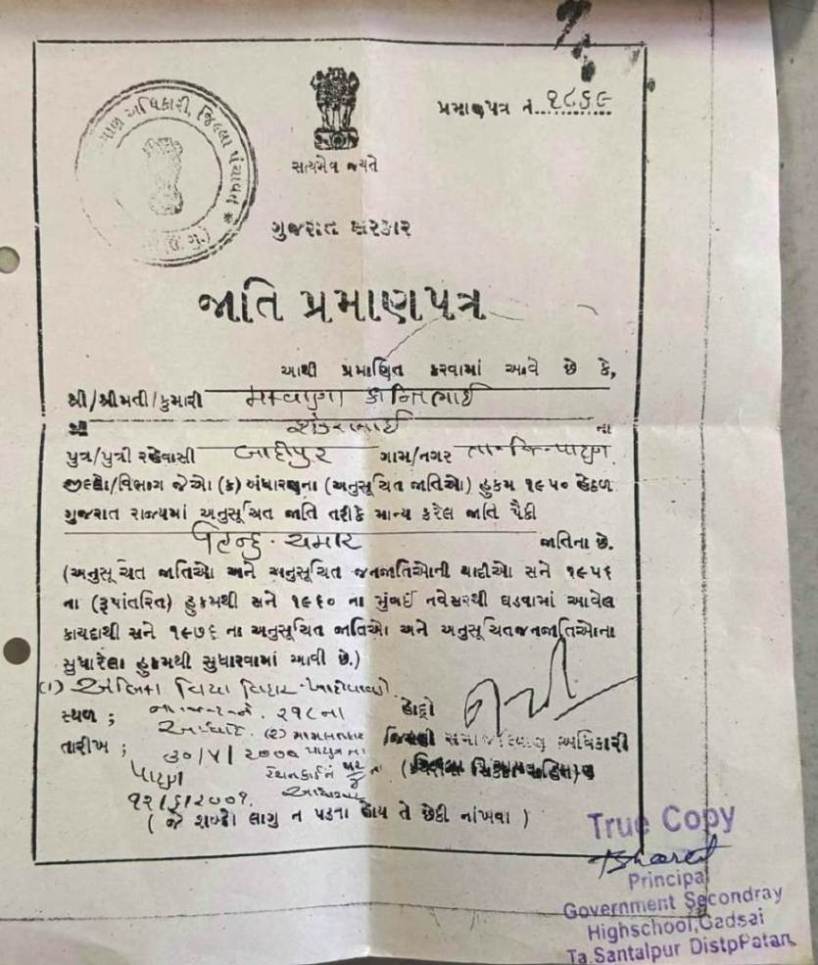 પ્રમાણપત્ર નં. ૨૮૬૯
અધિકારી, જિલ્લા પંચાયત
સત્યમેવ જયતે
ગુજરાત સરકાર
જાતિ પ્રમાણપત્ર
આથી પ્રમાણિત કરવામાં આવે છે કે,
શ્રી/શ્રીમતી/કુમારી મકવાણા કાન્તિભાઈ
શ્રી શંકરભાઈ ના
પુત્ર/પુત્રી રહેવાસી બાદીપુર ગામ/નગર તા-જિ-પાટણ
જીલ્લો/વિભાગ જેઓ (ક) બંધારણના (અનુસૂચિત જાતિઓ) હુકમ ૧૯૫૦ હેઠળ
ગુજરાત રાજ્યમાં અનુસૂચિત જાતિ તરીકે માન્ય કરેલ જાતિ પૈકી
હિન્દુ-ચમાર જાતિના છે.
(અનુસૂચિત જાતિઓ અને અનુસૂચિત જનજાતિઓની યાદીઓ સને ૧૯૫૬
ના (રૂપાંતરિત) હુકમથી સને ૧૯૬૦ ના મુંબઈ નવેસરથી ઘડવામાં આવેલ
કાયદાથી સને ૧૯૭૬ ના અનુસૂચિત જાતિઓ અને અનુસૂચિતજનજાતિઓના
સુધારેલા હુકમથી સુધારવામાં આવી છે.)
(૧)
સ્થળ ; ૨૧૮ના હોદ્દો
આધારે. (૨) મામલતદાર સમાજકલ્યાણ અધિકારી
તારીખ ; પાટણના
પાટણ રેશનકાર્ડ નં
૧૨/૬/૨૦૦૧.
( જે શબ્દો લાગુ ન પડતા હોય તે છેકી નાંખવા )
True Copy
Bharat
Principal
Government Secondray
Highschool,Gadsai
Ta.Santalpur DistpPatan